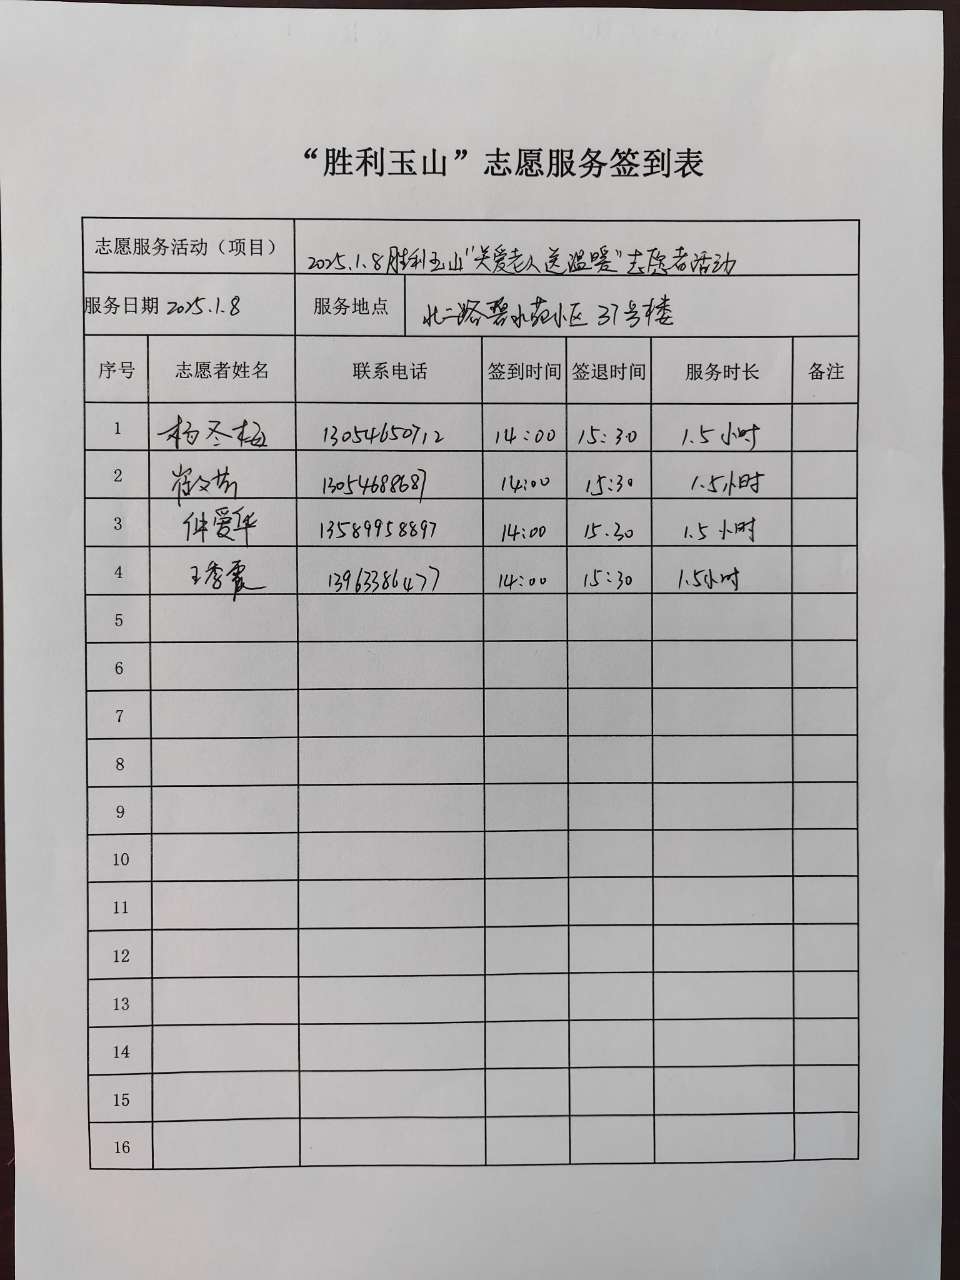 “胜利玉山”志愿服务签到表
志愿服务活动（项目） 2025.1.8胜利玉山“关爱老人送温暖”志愿者活动
服务日期 2025.1.8 服务地点 北二路碧水苑小区 37号楼
序号 志愿者姓名 联系电话 签到时间 签退时间 服务时长 备注
1 杨冬梅 13054650712 14:00 15:30 1.5小时
2 14:00 15:30 1.5小时
3 仲爱华 13589958897 14:00 15.30 1.5小时
4 王秀霞 13963386477 14:00 15:30 1.5小时
5
6
7
8
9
10
11
12
13
14
15
16